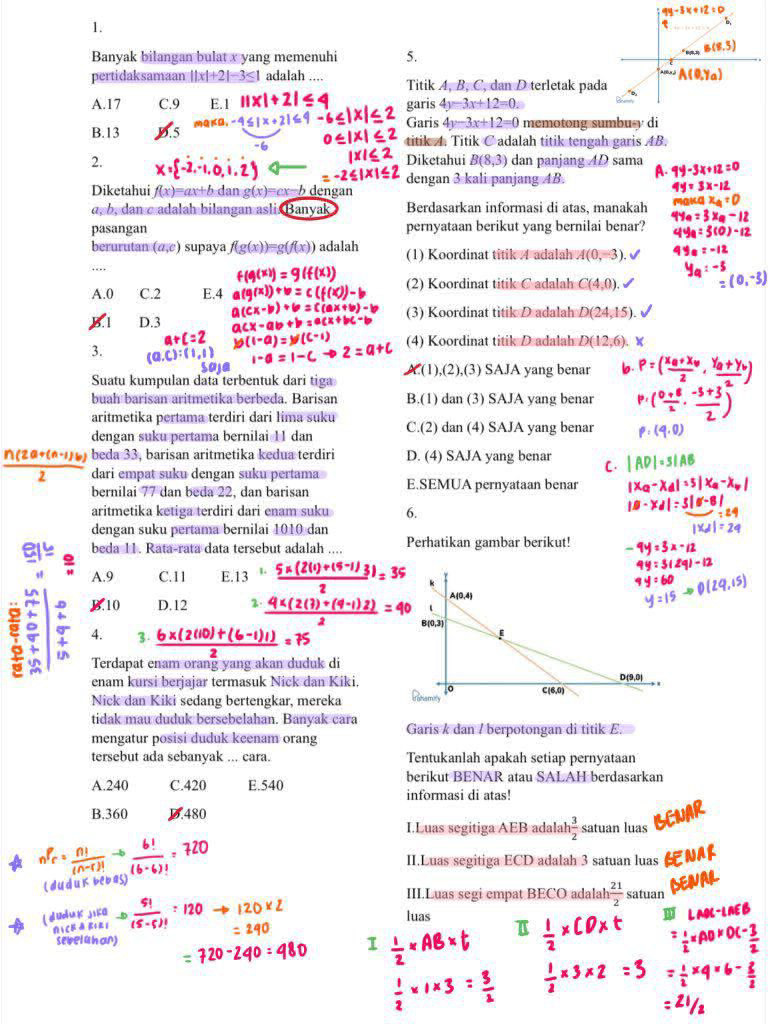 1.
Banyak bilangan bulat x yang memenuhi
pertidaksamaan ||x|+2|−3≤1 adalah ....
A.17 C.9 E.1
B.13 D.5
||x|+2| ≤ 4
maka, -4≤|x|+2≤4
-6
-6≤|x|≤2
0≤|x|≤2
|x|≤2
= -2≤|x|≤2
x={-2,-1,0,1,2}
2.
Diketahui f(x)=ax+b dan g(x)=cx−b dengan
a, b, dan c adalah bilangan asli. Banyak
pasangan
berurutan (a,c) supaya f(g(x))=g(f(x)) adalah
....
A.0 C.2 E.4
B.1 D.3
f(g(x)) = g(f(x))
a(g(x))+b = c(f(x))-b
a(cx-b)+b = c(ax+b)-b
acx-ab+b = acx+bc-b
b(1-a) = b(c-1)
1-a = 1-c → 2=a+c
a+c=2
(a,c):(1,1)
saja
3.
Suatu kumpulan data terbentuk dari tiga
buah barisan aritmetika berbeda. Barisan
aritmetika pertama terdiri dari lima suku
dengan suku pertama bernilai 11 dan
beda 33, barisan aritmetika kedua terdiri
dari empat suku dengan suku pertama
bernilai 77 dan beda 22, dan barisan
aritmetika ketiga terdiri dari enam suku
dengan suku pertama bernilai 1010 dan
beda 11. Rata-rata data tersebut adalah ....
A.9 C.11 E.13
B.10 D.12
n(2a+(n-1)b)
2
1. 5×(2(1)+(5-1)3) = 35
2
2. 4×(2(7)+(4-1)2) = 40
2
3. 6×(2(10)+(6-1)1) = 75
2
rata-rata:
35+40+75 = 150
5+4+6 15
=10
4.
Terdapat enam orang yang akan duduk di
enam kursi berjajar termasuk Nick dan Kiki.
Nick dan Kiki sedang bertengkar, mereka
tidak mau duduk bersebelahan. Banyak cara
mengatur posisi duduk keenam orang
tersebut ada sebanyak ... cara.
A.240 C.420 E.540
B.360 D.480
nPr = n! → 6! = 720
(n-r)! (6-6)!
(duduk bebas)
(duduk jika
nick & kiki
sebelahan)
→ 5! = 120 → 120×2
(5-5)! = 240
= 720-240 = 480
5.
Titik A, B, C, dan D terletak pada
garis 4y−3x+12=0.
Garis 4y−3x+12=0 memotong sumbu-y di
titik A. Titik C adalah titik tengah garis AB.
Diketahui B(8,3) dan panjang AD sama
dengan 3 kali panjang AB.
Berdasarkan informasi di atas, manakah
pernyataan berikut yang bernilai benar?
(1) Koordinat titik A adalah A(0,−3). ✓
(2) Koordinat titik C adalah C(4,0). ✓
(3) Koordinat titik D adalah D(24,15). ✓
(4) Koordinat titik D adalah D(12,6). x
A.(1),(2),(3) SAJA yang benar
B.(1) dan (3) SAJA yang benar
C.(2) dan (4) SAJA yang benar
D. (4) SAJA yang benar
E.SEMUA pernyataan benar
4y-3x+12=0
B(8,3)
A(0,Ya)
A. 4y-3x+12=0
4y = 3x-12
maka xa=0
4ya = 3xa-12
4ya = 3(0)-12
4ya = -12
ya = -3
= (0,-3)
b. P = (xa+xb , ya+yb)
2 2
P: (0+8 , -3+3)
2 2
P: (4,0)
C. |AD|=3|AB
|xa-xd|=3|xa-xb|
|0-xd|=3|0-8|
=24
|xd|=24
- 4y=3x-12
4y=3(24)-12
4y=60
y=15 → D(24,15)
6.
Perhatikan gambar berikut!
k
A(0,4)
l
B(0,3)
E
D(9,0)
O
C(6,0)
x
Pahamify
Garis k dan l berpotongan di titik E.
Tentukanlah apakah setiap pernyataan
berikut BENAR atau SALAH berdasarkan
informasi di atas!
I.Luas segitiga AEB adalah 3/2 satuan luas BENAR
II.Luas segitiga ECD adalah 3 satuan luas BENAR
III.Luas segi empat BECO adalah 21/2 satuan BENAR
luas
I 1/2 × AB × t
1/2 × 1 × 3 = 3/2
II 1/2 × CD × t
1/2 × 3 × 2 = 3
III LAOC-LAEB
= 1/2 × AO × OC - 3/2
= 1/2 × 4 × 6 - 3/2
= 21/2